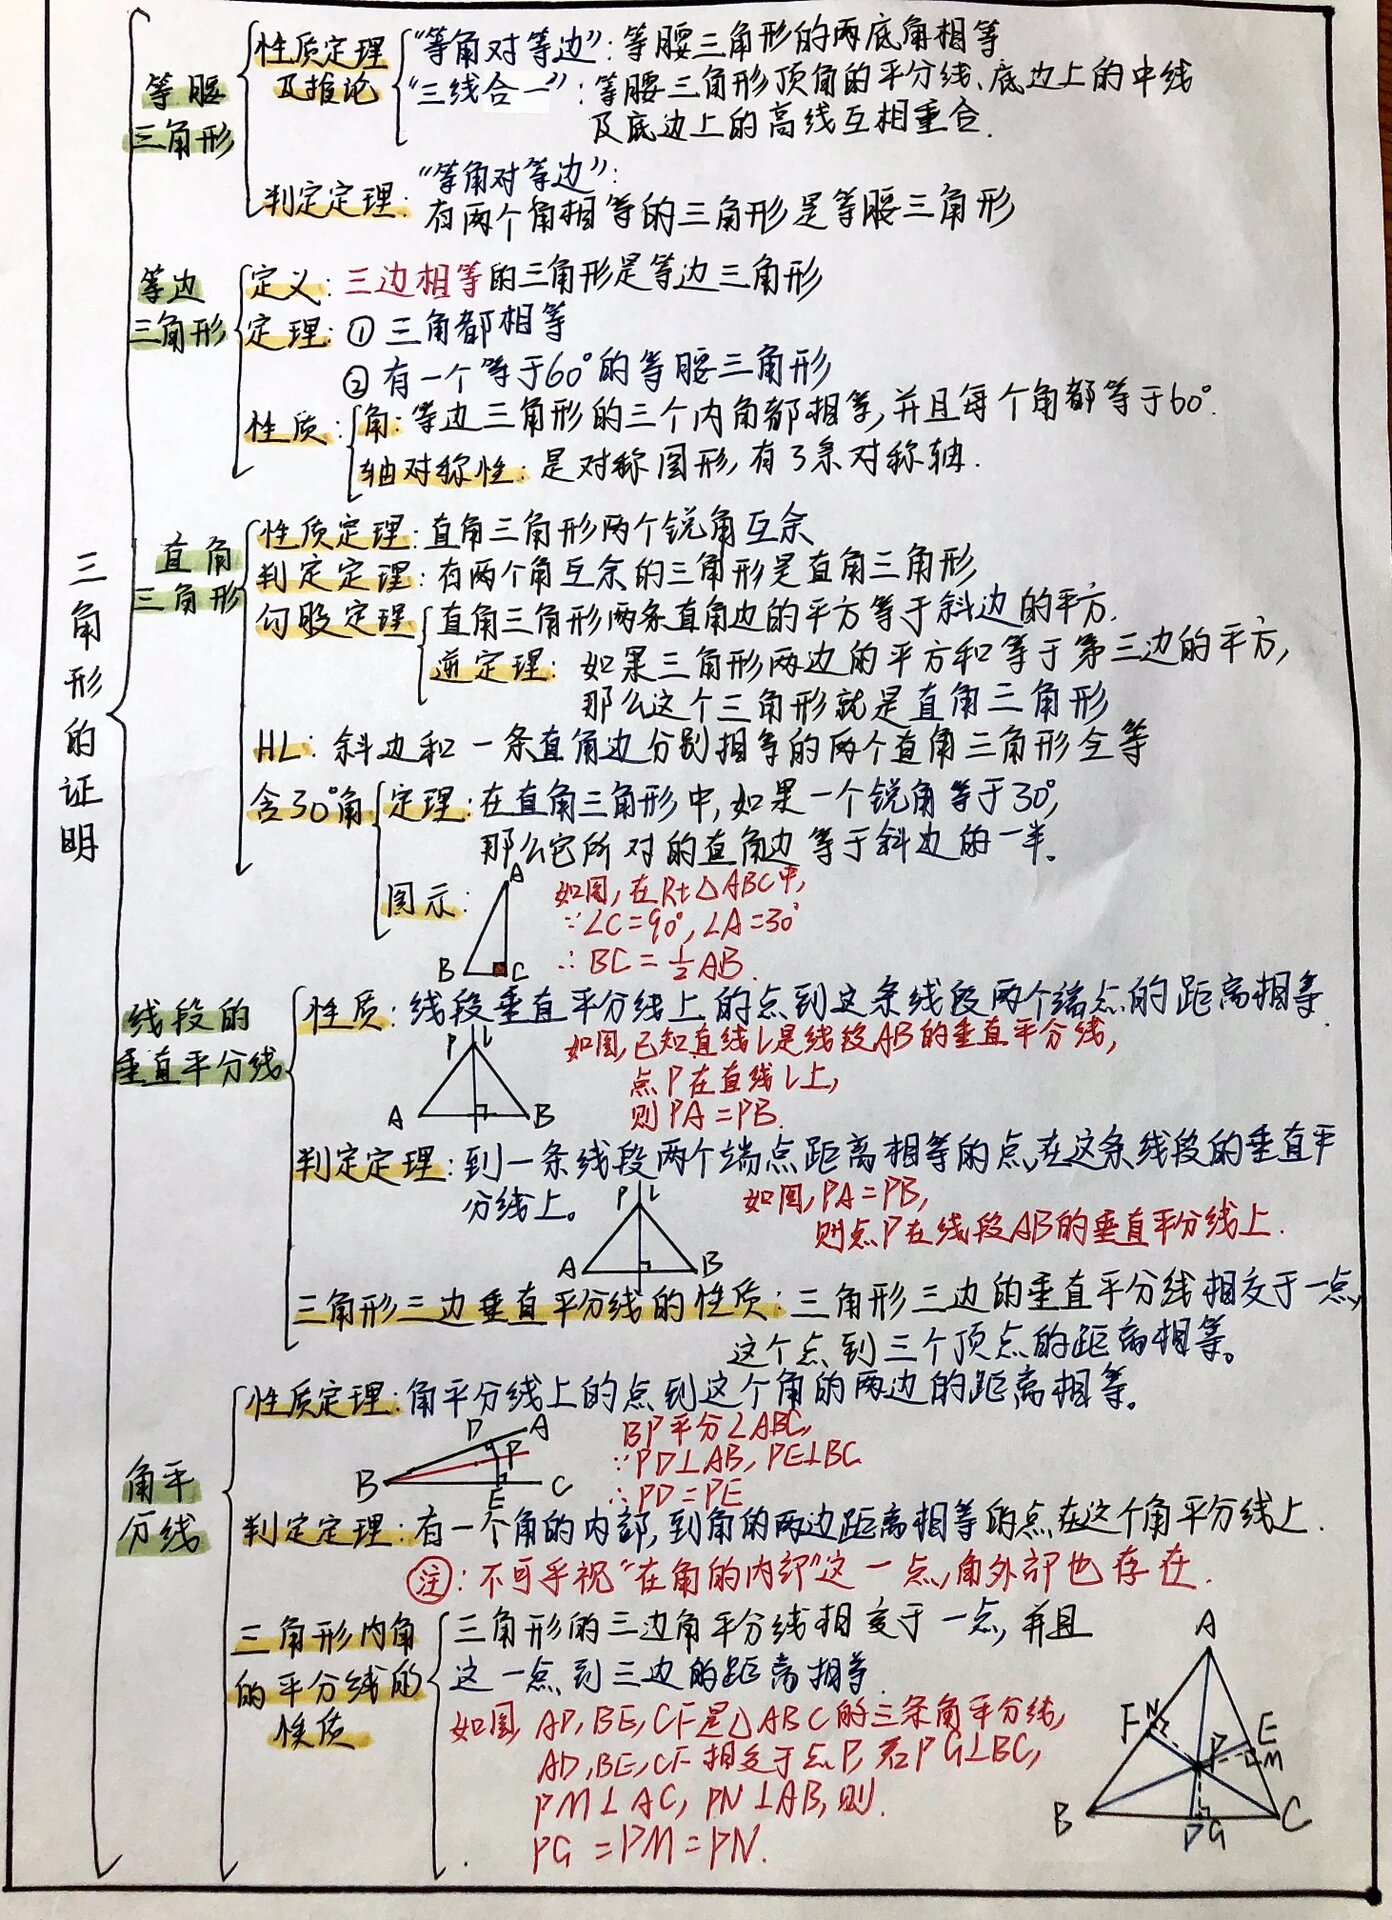 三角形的证明
等腰
三角形
性质定理
及推论
“等角对等边”：等腰三角形的两底角相等
“三线合一”：等腰三角形顶角的平分线、底边上的中线
及底边上的高线互相重合.
判定定理：
“等角对等边”：
有两个角相等的三角形是等腰三角形
等边
三角形
定义：三边相等的三角形是等边三角形
定理：①三角都相等
②有一个等于60°的等腰三角形
性质：
角：等边三角形的三个内角都相等,并且每个角都等于60°.
轴对称性：是对称图形,有3条对称轴.
直角
三角形
性质定理：直角三角形两个锐角互余
判定定理：有两个角互余的三角形是直角三角形
勾股定理
直角三角形两条直角边的平方等于斜边的平方.
逆定理：如果三角形两边的平方和等于第三边的平方,
那么这个三角形就是直角三角形
HL：斜边和一条直角边分别相等的两个直角三角形全等
含30°角
定理：在直角三角形中,如果一个锐角等于30°,
那么它所对的直角边等于斜边的一半。
图示：
A
B
C
如图,在Rt△ABC中,
∵∠C=90°,∠A=30°
∴BC=½AB.
线段的
垂直平分线
性质：线段垂直平分线上的点到这条线段两个端点的距离相等.
P l
A
B
如图,已知直线l是线段AB的垂直平分线,
点P在直线l上,
则PA=PB.
判定定理：到一条线段两个端点距离相等的点,在这条线段的垂直平
分线上。
P l
A
B
如图,PA=PB,
则点P在线段AB的垂直平分线上.
三角形三边垂直平分线的性质：三角形三边的垂直平分线相交于一点,
这个点到三个顶点的距离相等。
角平
分线
性质定理：角平分线上的点到这个角的两边的距离相等。
D A
P
B
E C
BP平分∠ABC,
∵PD⊥AB,PE⊥BC
∴PD=PE
判定定理：有一个角的内部,到角的两边距离相等的点在这个角平分线上.
注：不可乎视“在角的内部”这一点,角外部也存在.
三角形内角
的平分线的
性质
三角形的三边角平分线相交于一点,并且
这一点到三边的距离相等.
如图,AD,BE,CF是△ABC的三条角平分线,
AD,BE,CF相交于点P,若PG⊥BC,
PM⊥AC,PN⊥AB,则.
PG=PM=PN.
A
F N
E
P
M
B
D G
C